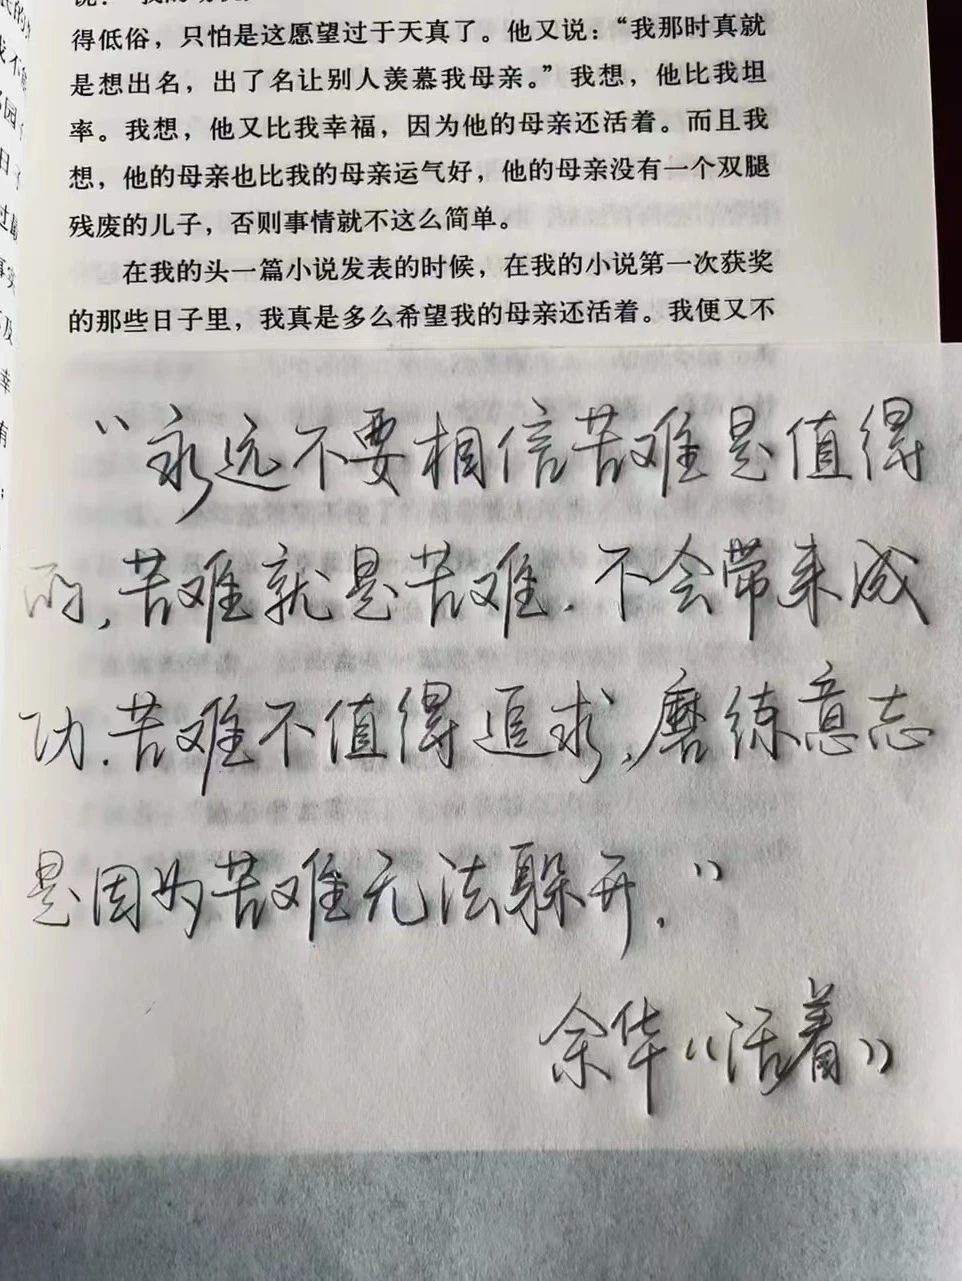 得低俗，只怕是这愿望过于天真了。他又说：“我那时真就
是想出名，出了名让别人羡慕我母亲。”我想，他比我坦
率。我想，他又比我幸福，因为他的母亲还活着。而且我
想，他的母亲也比我的母亲运气好，他的母亲没有一个双腿
残废的儿子，否则事情就不这么简单。
在我的头一篇小说发表的时候，在我的小说第一次获奖
的那些日子里，我真是多么希望我的母亲还活着。我便又不
“永远不要相信苦难是值得
的，苦难就是苦难，不会带来成
功。苦难不值得追求，磨练意志
是因为苦难无法躲开。”
余华《活着》